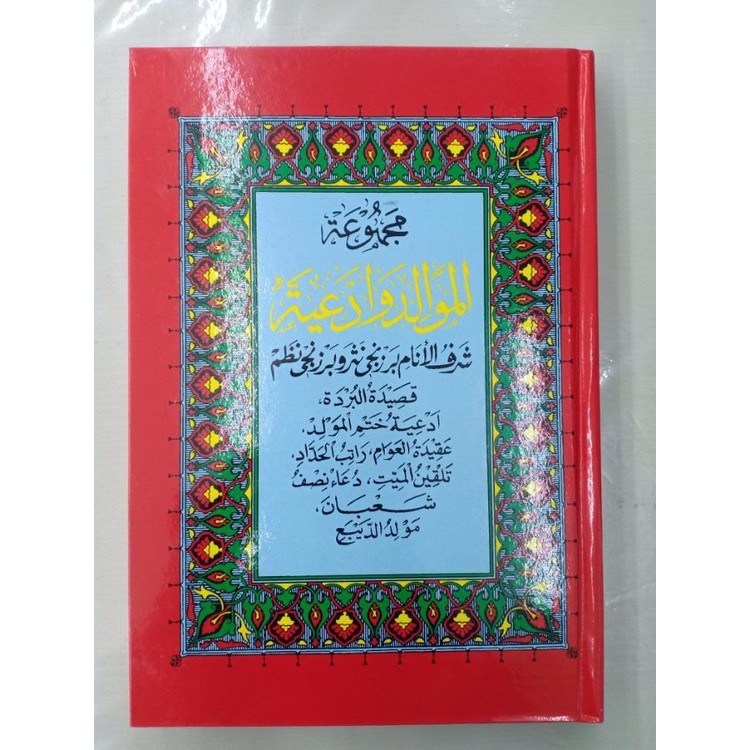 مَجْمُوْعَة
المَوَالِد وَادْعِيَة
شرفُ الأنام بَرزنجى نثر وبرزنجى نظم
قَصِيْدَةُ الْبُرْدَة،
اَدْعِيَةُ خَتْمِ الْمَوْلِدْ،
عَقِيْدَةُ الْعَوَامِ، رَاتِبُ الْحَدَّادِ،
تَلْقِيْنُ الْمَيِّتِ، دُعَاء نِصْفُ
شَعْبَانَ،
مَوْلِدُ الدَّيْبَع